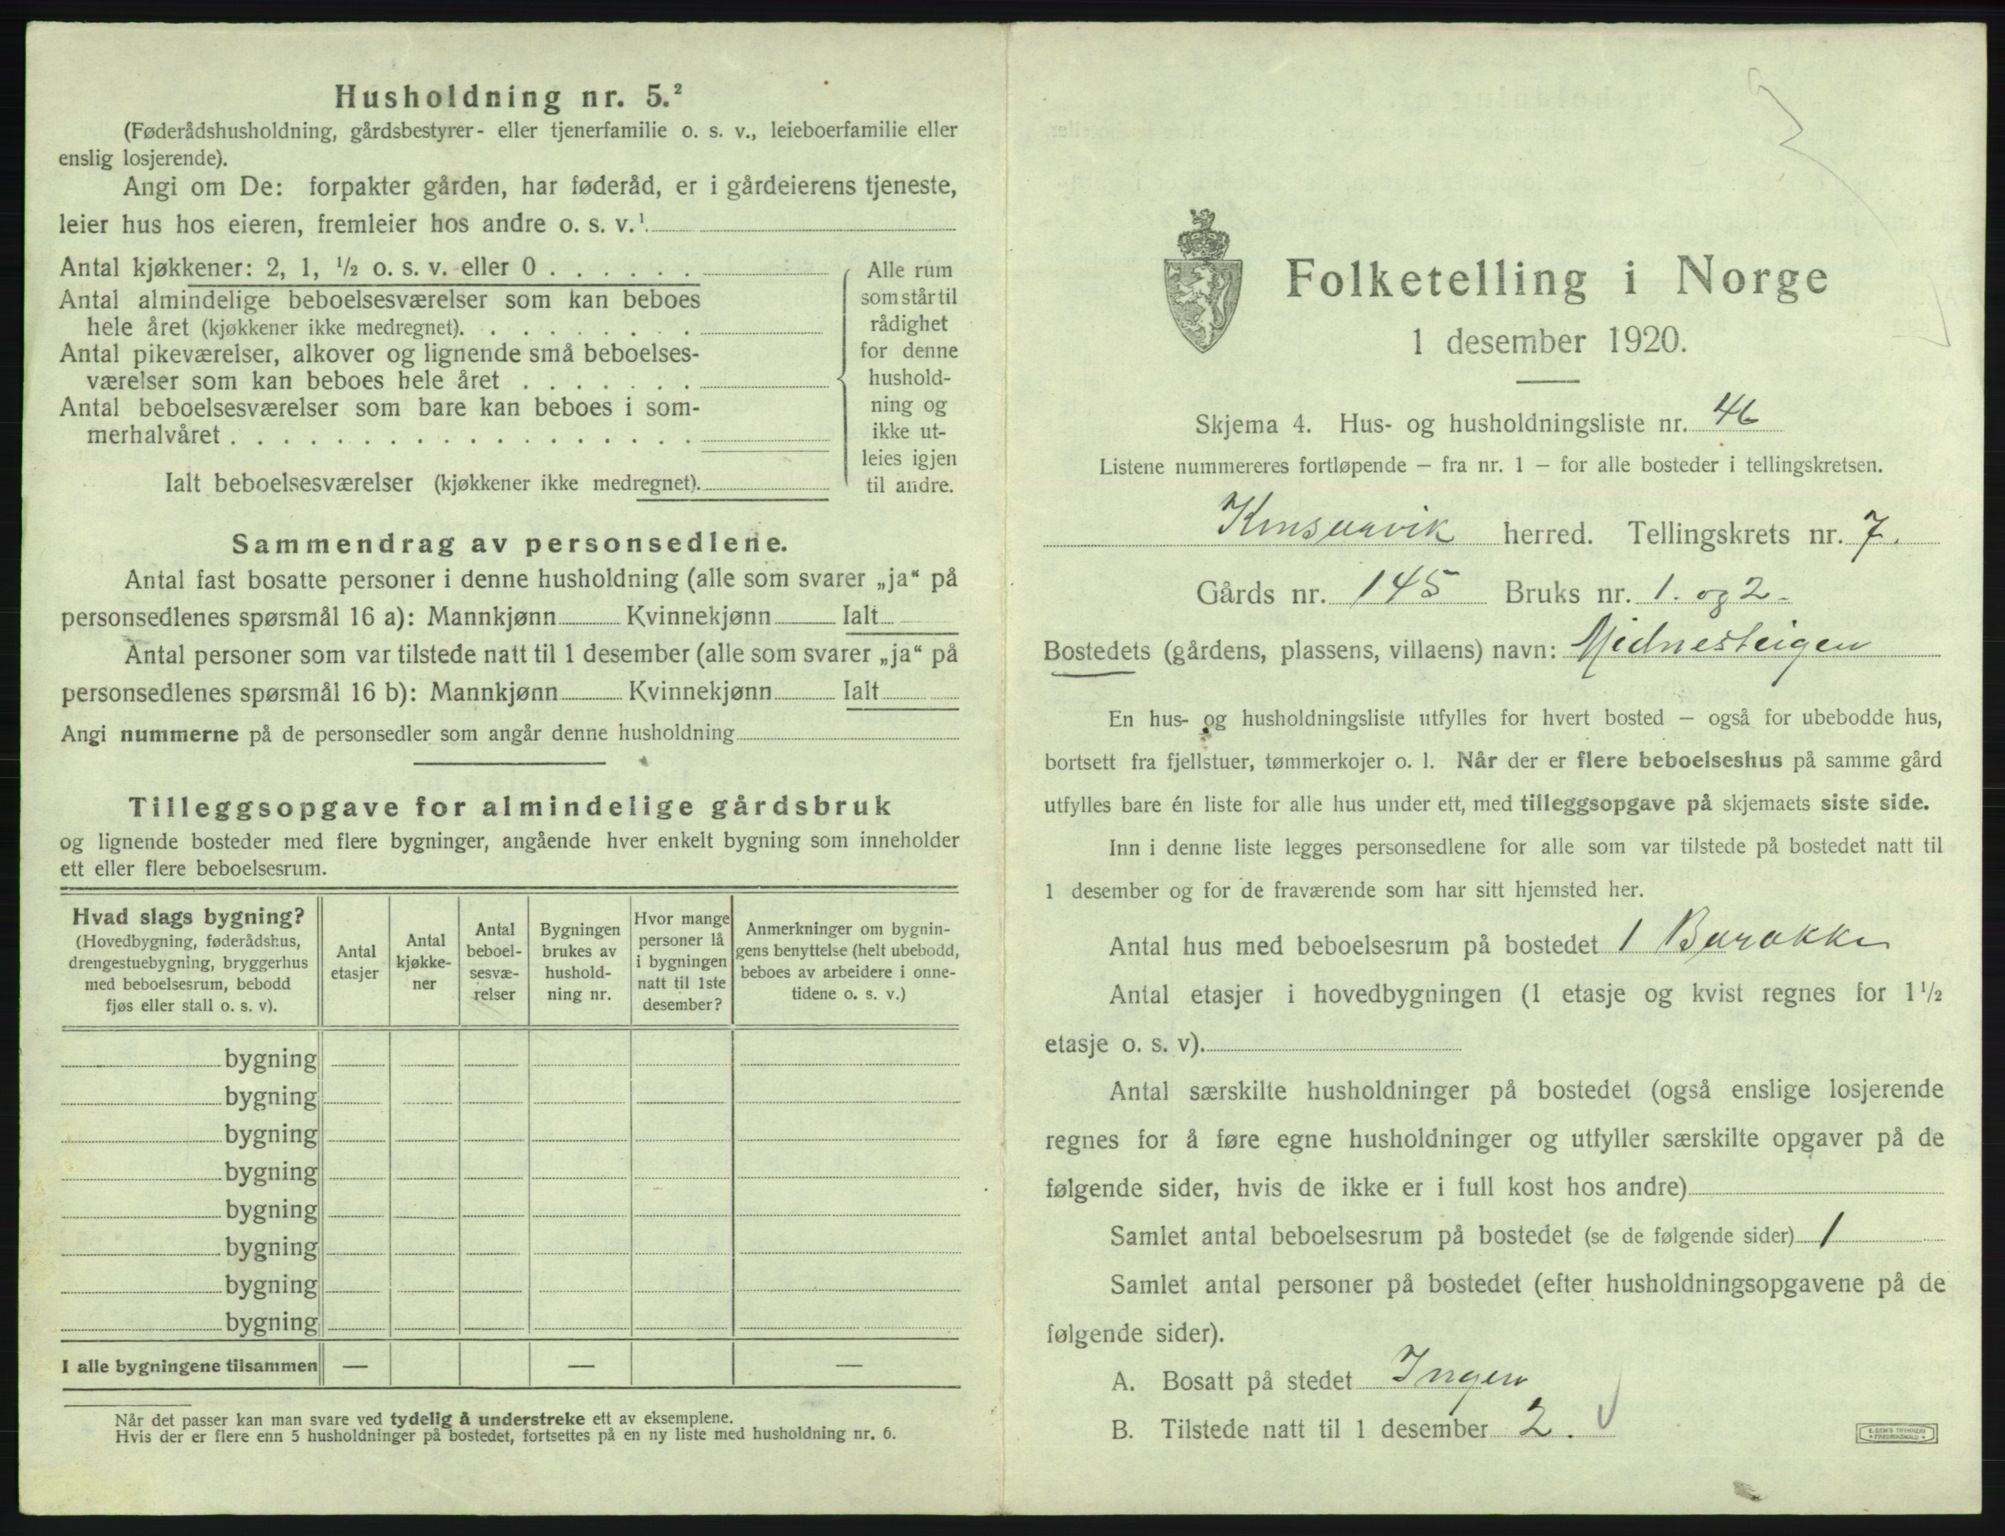 Husholdning nr. 5.²
(Føderådshusholdning, gårdsbestyrer- eller tjenerfamilie o. s. v., leieboerfamilie eller
enslig losjerende).
Angi om De: forpakter gården, har føderåd, er i gårdeierens tjeneste,
leier hus hos eieren, fremleier hos andre o. s. v.¹
Antal kjøkkener: 2, 1, ½ o. s. v. eller 0 . . . . . .
Antal almindelige beboelsesværelser som kan beboes
hele året (kjøkkener ikke medregnet). . . . . . . . .
Antal pikeværelser, alkover og lignende små beboelses-
værelser som kan beboes hele året . . . . . . .
Antal beboelsesværelser som bare kan beboes i som-
merhalvåret . . . . . . . . . . . . . . . . . .
Ialt beboelsesværelser (kjøkkener ikke medregnet).
Alle rum
som står til
rådighet
for denne
hushold-
ning og
ikke ut-
leies igjen
til andre.
Sammendrag av personsedlene.
Antal fast bosatte personer i denne husholdning (alle som svarer „ja“ på
personsedlenes spørsmål 16 a): Mannkjønn Kvinnekjønn Ialt
Antal personer som var tilstede natt til 1 desember (alle som svarer „ja“ på
personsedlenes spørsmål 16 b): Mannkjønn Kvinnekjønn Ialt
Angi nummerne på de personsedler som angår denne husholdning
Tilleggsopgave for almindelige gårdsbruk
og lignende bosteder med flere bygninger, angående hver enkelt bygning som inneholder
ett eller flere beboelsesrum.
Hvad slags bygning?
(Hovedbygning, føderådshus,
drengestuebygning, bryggerhus
med beboelsesrum, bebodd
fjøs eller stall o. s. v).
Antal
etasjer
Antal
kjøkke-
ner
Antal
beboel-
sesvæ-
relser
Bygningen
brukes av
hushold-
ning nr.
Hvor mange
personer lå
i bygningen
natt til 1ste
desember?
Anmerkninger om bygnin-
gens benyttelse (helt ubebodd,
beboes av arbeidere i onne-
tidene o. s. v.)
bygning
bygning
bygning
bygning
bygning
bygning
bygning
bygning
I alle bygningene tilsammen — — —
Når det passer kan man svare ved tydelig å understreke ett av eksemplene.
Hvis der er flere enn 5 husholdninger på bostedet, fortsettes på en ny liste med husholdning nr. 6.
Folketelling i Norge
1 desember 1920.
Skjema 4. Hus- og husholdningsliste nr. 46
Listene nummereres fortløpende – fra nr. 1 – for alle bosteder i tellingskretsen.
Kinsarvik herred. Tellingskrets nr. 7.
Gårds nr. 145 Bruks nr. 1. og 2.
Bostedets (gårdens, plassens, villaens) navn: Midnesteigen
En hus- og husholdningsliste utfylles for hvert bosted – også for ubebodde hus,
bortsett fra fjellstuer, tømmerkojer o. l. Når der er flere beboelseshus på samme gård
utfylles bare én liste for alle hus under ett, med tilleggsopgave på skjemaets siste side.
Inn i denne liste legges personsedlene for alle som var tilstede på bostedet natt til
1 desember og for de fraværende som har sitt hjemsted her.
Antal hus med beboelsesrum på bostedet 1 Barakke
Antal etasjer i hovedbygningen (1 etasje og kvist regnes for 1½
etasje o. s. v).
Antal særskilte husholdninger på bostedet (også enslige losjerende
regnes for å føre egne husholdninger og utfyller særskilte opgaver på de
følgende sider, hvis de ikke er i full kost hos andre)
Samlet antal beboelsesrum på bostedet (se de følgende sider) 1
Samlet antal personer på bostedet (efter husholdningsopgavene på de
følgende sider).
A. Bosatt på stedet Ingen
B. Tilstede natt til 1 desember 2. √